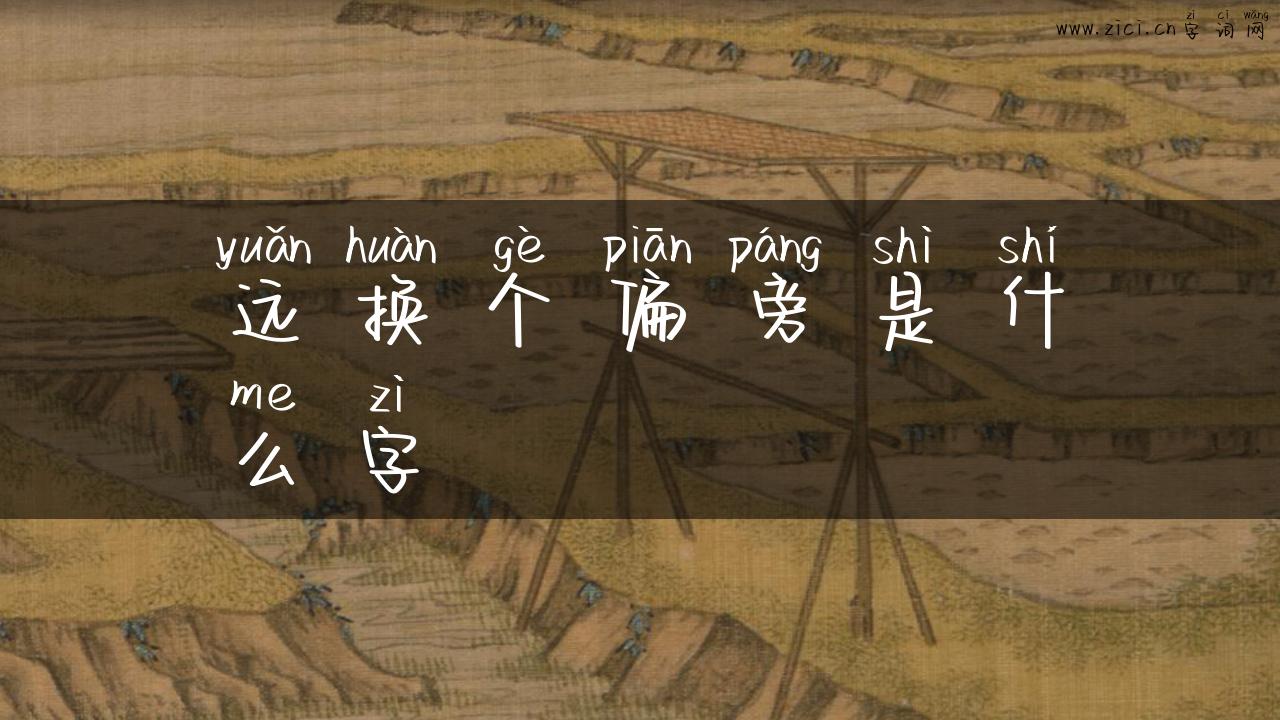 zì cí wǎng
www.zici.cn 字词网
yuǎn huàn gè piān páng shì shí
远换个偏旁是什
me zì
么字